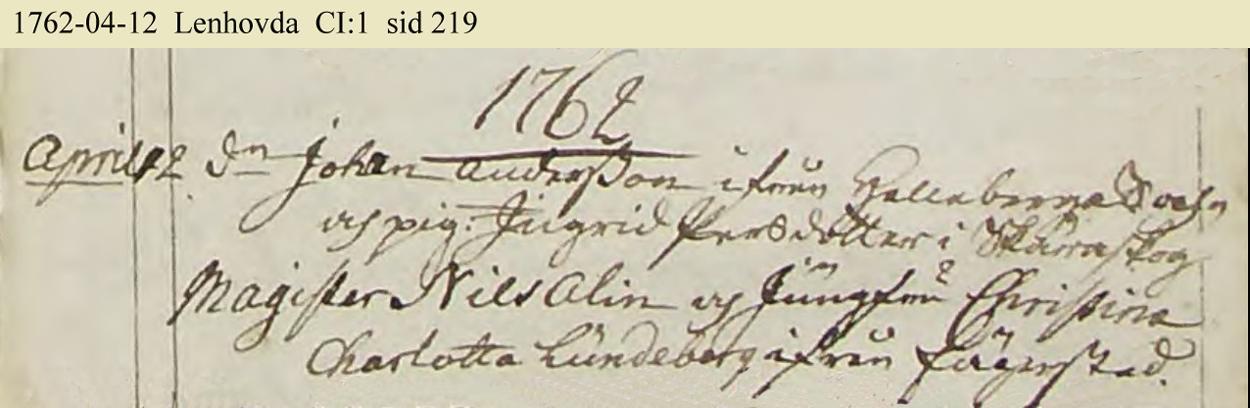 1762-04-12 Lenhovda CI:1 sid 219
1762
April 12 Dn Johan Andersson ifrån Hellebergs Sochn
och pig: Ingrid Persdotter i Skärraskog
Magister Nils Alin och Jungfru Christina
Charlotta Lundeberg ifrån Fägerstad.